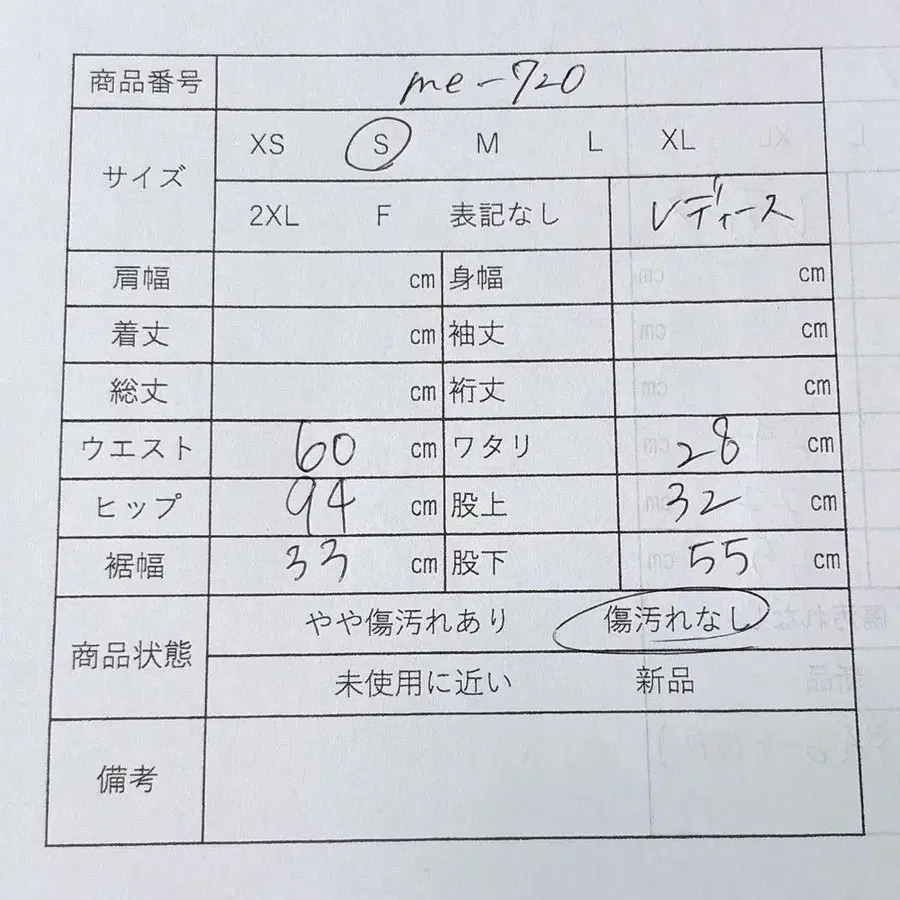 商品番号 me-720
サイズ XS S M L XL
2XL F 表記なし レディース
肩幅 cm 身幅 cm
着丈 cm 袖丈 cm
総丈 cm 裄丈 cm
ウエスト 60 cm ワタリ 28 cm
ヒップ 94 cm 股上 32 cm
裾幅 33 cm 股下 55 cm
商品状態 やや傷汚れあり 傷汚れなし
未使用に近い 新品
備考